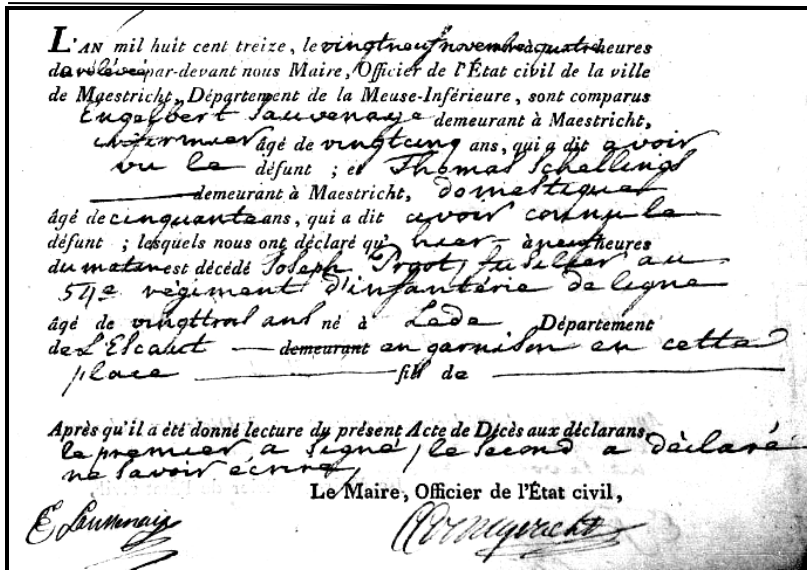 L'AN mil huit cent treize, le vingtneuf novembre à quatre heures
de relévée par-devant nous Maire, Officier de l'État civil de la ville
de Maestricht, Département de la Meuse-Inférieure, sont comparus
Engelbert Sauvenaye demeurant à Maestricht,
infirmier âgé de vingtcinq ans, qui a dit avoir
vu le défunt ; et Thomas Schellings
demeurant à Maestricht, domestique
âgé de cinquante ans, qui a dit avoir connu le
défunt ; lesquels nous ont déclaré qu'hier à neuf heures
du matin est décédé Joseph fusilier au
54e régiment d'infantérie de ligne
âgé de vingttrois ans né à Lede Département
de L'Escaut demeurant en garnison en cette
place fils de
Après qu'il a été donné lecture du présent Acte de Décès aux déclarans,
le premier a signé, le second a déclaré
ne savoir écrire,
Le Maire, Officier de l'État civil,